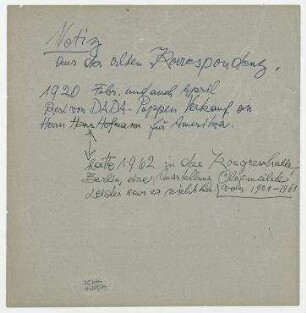 Notiz
aus der alten Korrespondenz.
1920 Febr. und auch April
Brief von DADA-Puppen Verkauf an
Herrn Hans Hofmann für Amerika.
hatte 1962 in der Kongresshalle
Berlin, eine Ausstellung Ölgemälde
Leider war er nicht hier von 1901-1961